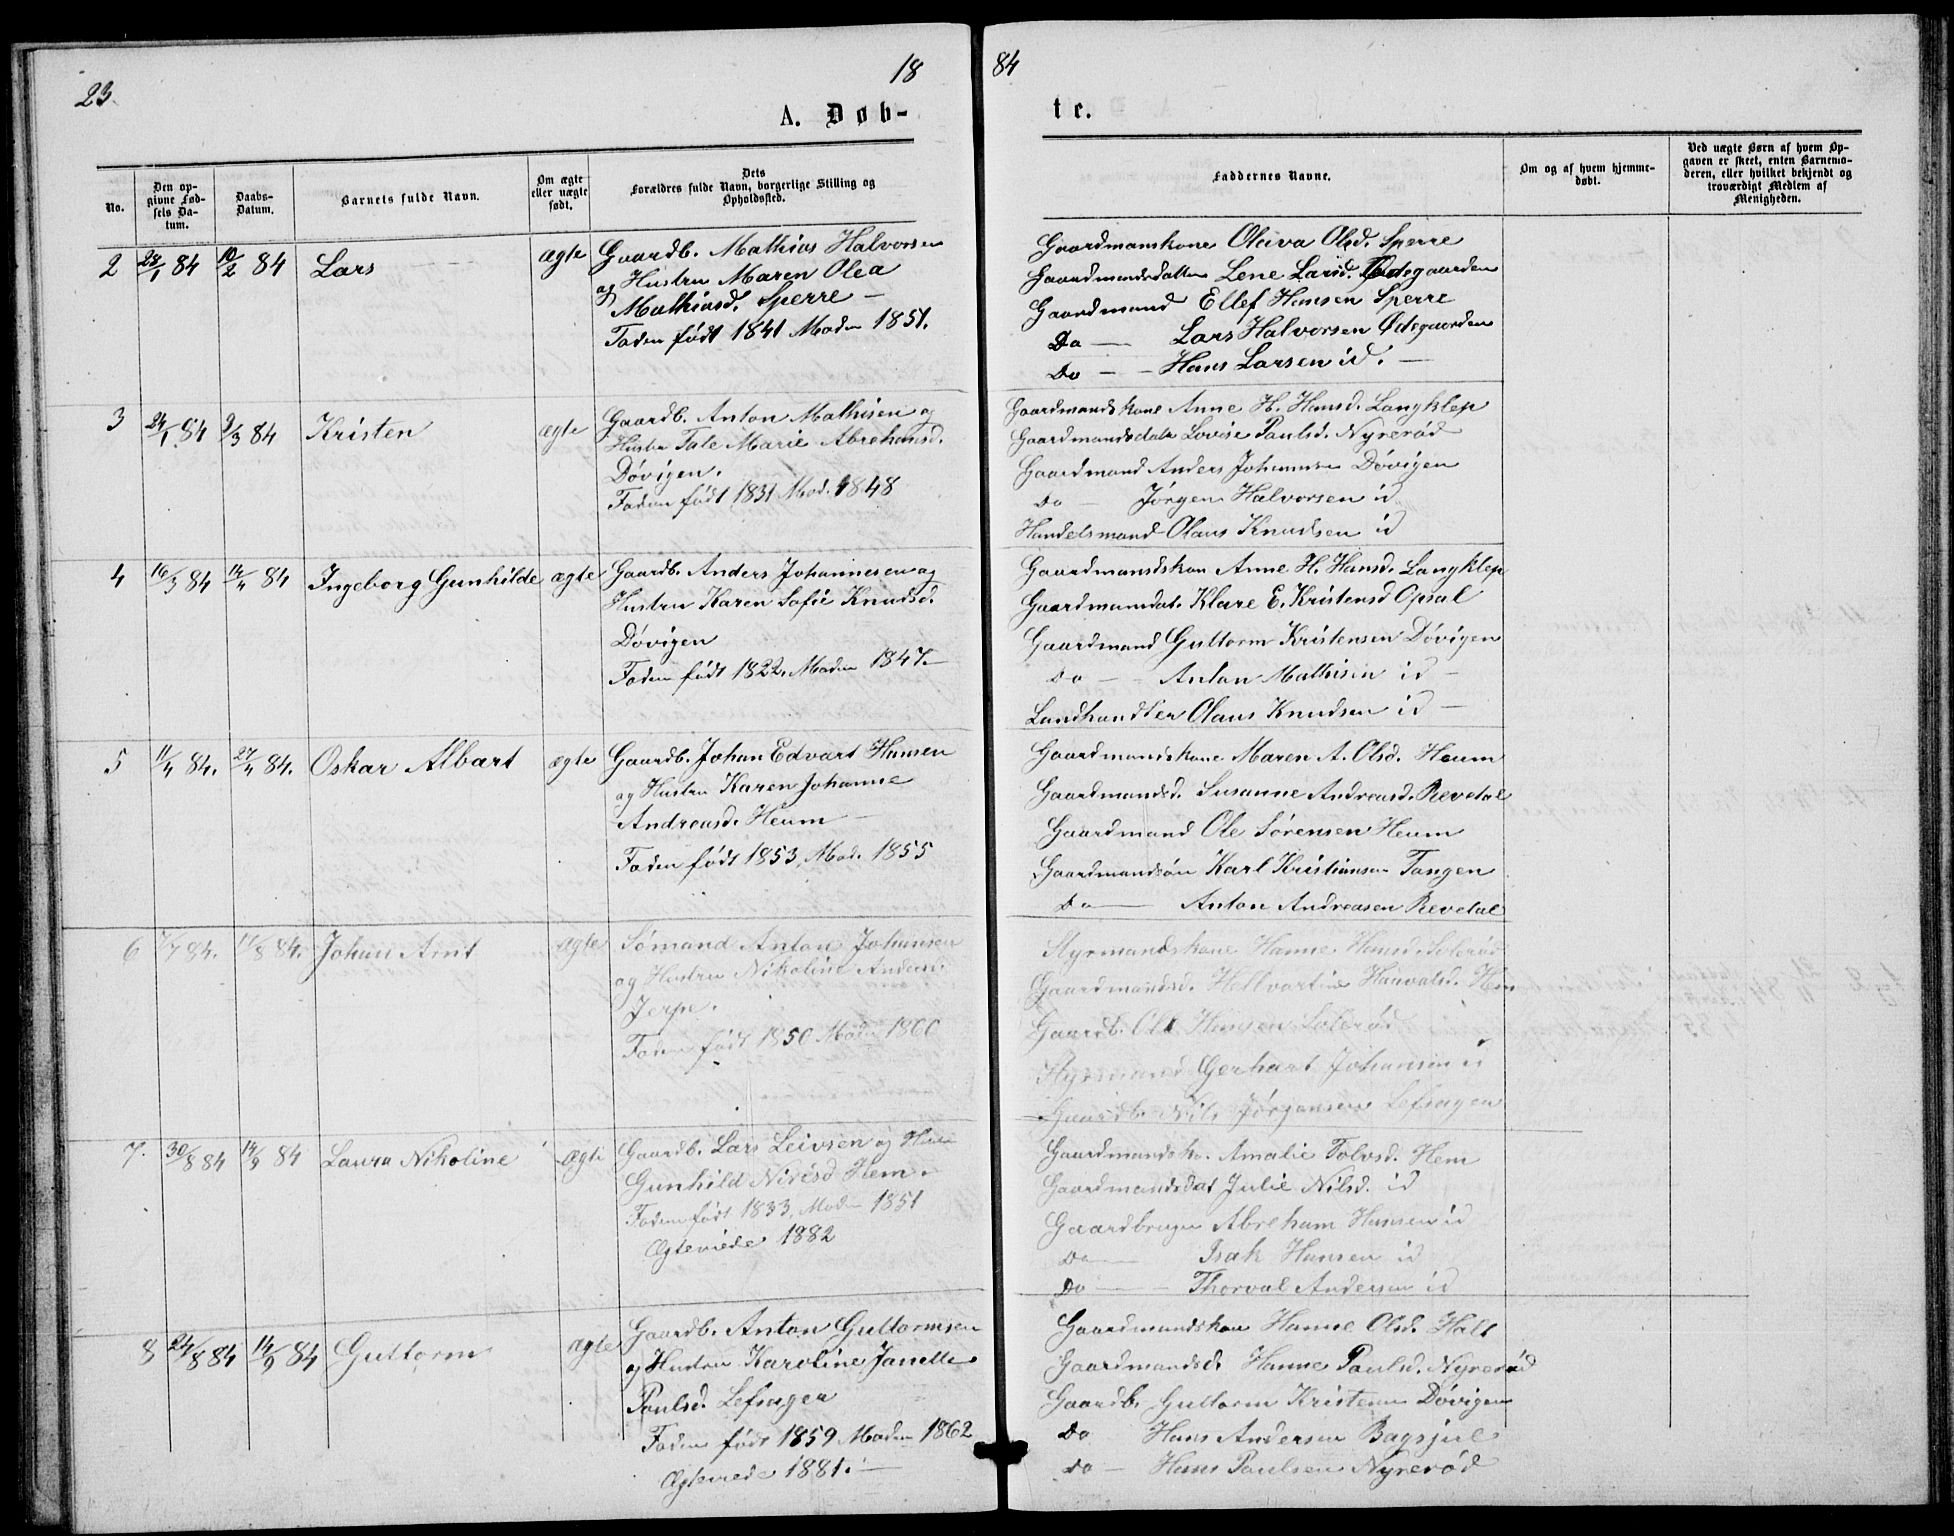 23.
18
84
A. Døb-
te.
No.
Den op-
givne Fød-
sels Da-
tum.
Daabs-
Datum.
Barnets fulde Navn.
Om ægte
eller uægte
født.
Dets
Forældres fulde Navn, borgerlige Stilling og
Opholdssted.
Faddernes Navne.
Om og af hvem hjemme-
døbt.
Ved uægte Børn af hvem Op-
gaven er skeet, enten Barnemo-
deren, eller hvilket bekjendt og
troværdigt Medlem af
Menigheden.
2 28/1 84 10/2 84 Lars ægte
Gaardb. Mathias Halvorsen
og Hustru Maren Olea
Mathiasd. Sperre —
Faden født 1841 Moden 1851.
Gaardmanskone Oleiva Olsd. Sperre
Gaardmandsdatter Lene Larsd. Ødegaarden
Gaardmand Ellef Hansen Sperre
Do — Lars Halvorsen Ødegaarden
Do — Hans Larsen id. —
3 24/1 84 9/3 84 Kristen ægte
Gaardb. Anton Mathisen og
Hustru Tale Marie Abrehamsd.
Døvigen.
Faden født 1831 Mod. 1848
Gaardmandskone Anne H. Hansd. Langklep
Gaardmandsdatr Lovise Paulsd. Nyrerød
Gaardmand Anders Johannesen Døvigen
Do — Jørgen Halvorsen id
Handelsmand Olaus Knudsen id
4 16/3 84 14/4 84 Ingeborg Gunhilde ægte
Gaardb. Anders Johannesen og
Hustru Karen Sofie Knudsd.
Døvigen
Faden født 1822. Moden 1847. —
Gaardmandskon Anne H. Hansd. Langklep
Gaardmandat. Klare E. Kristensd Opsal
Gaardmand Guttorm Kristensen Døvigen
Do — Anton Mathisin id —
Landhandler Olaus Knudsen id —
5 11/4 84. 27/4 84. Oskar Albart ægte
Gaardb. Johan Edvart Hansen
og Hustru Karen Johanne
Andreasd. Heum —
Faden født 1853, Mod. 1855
Gaardmandskone Maren A. Olsd. Heum
Gaardmandsd. Susanne Andreasd. Revetal
Gaardmand Ole Sørensen Heum
Gaardmandsøn Karl Kristiansen Tangen
Do — Anton Andreasen Revetal
6 7/7 84. 17/8 84. Johan Arnt ægte
Sømand Anton Johansen
og Hustru Nikoline Andersd.
Jerpe.
Faden født 1850 Moden 1860
Styrmandskone Hanne Hansd. Solerød
Gaardmandsd. Hallvartine Hauvalsd. Hem
Gaardb. Ole Hansen Solerød
Styrmand Gerhart Johansen id
Gaardb. Nils Jørgensen Lefsagen
7. 30/8 84 14/9 84 Laura Nikoline Ægte
Gaardb. Lars Leivsen og Hust
Gunhild Nirisd Hem.
Faden født 1833, Moden 1851
Ægteviede 1882
Gaardmandsko. Amalie Tolvsd. Hem
Gaardmandsdat Julie Nilsd. id
Gaardbruger Abreham Hansen id
Do — Isak Hansen id
Do — Thorval Andersen id
8 24/8 84 14/9 84 Guttorm ægte
Gaardb. Anton Guttormsen
og Hustru Karoline Janette
Paulsd. Lefsagen
Faden født 1859 Moden 1862
Ægteviede 1881. —
Gaardmandskon Hanne Olsd. Holt
Gaardmandsd. Hanne Paulsd. Nyrerød
Gaardb. Guttorm Kristensen Døvigen
Do Hans Andersen Bagsjøl
Do — Hans Paulsen Nyrerød